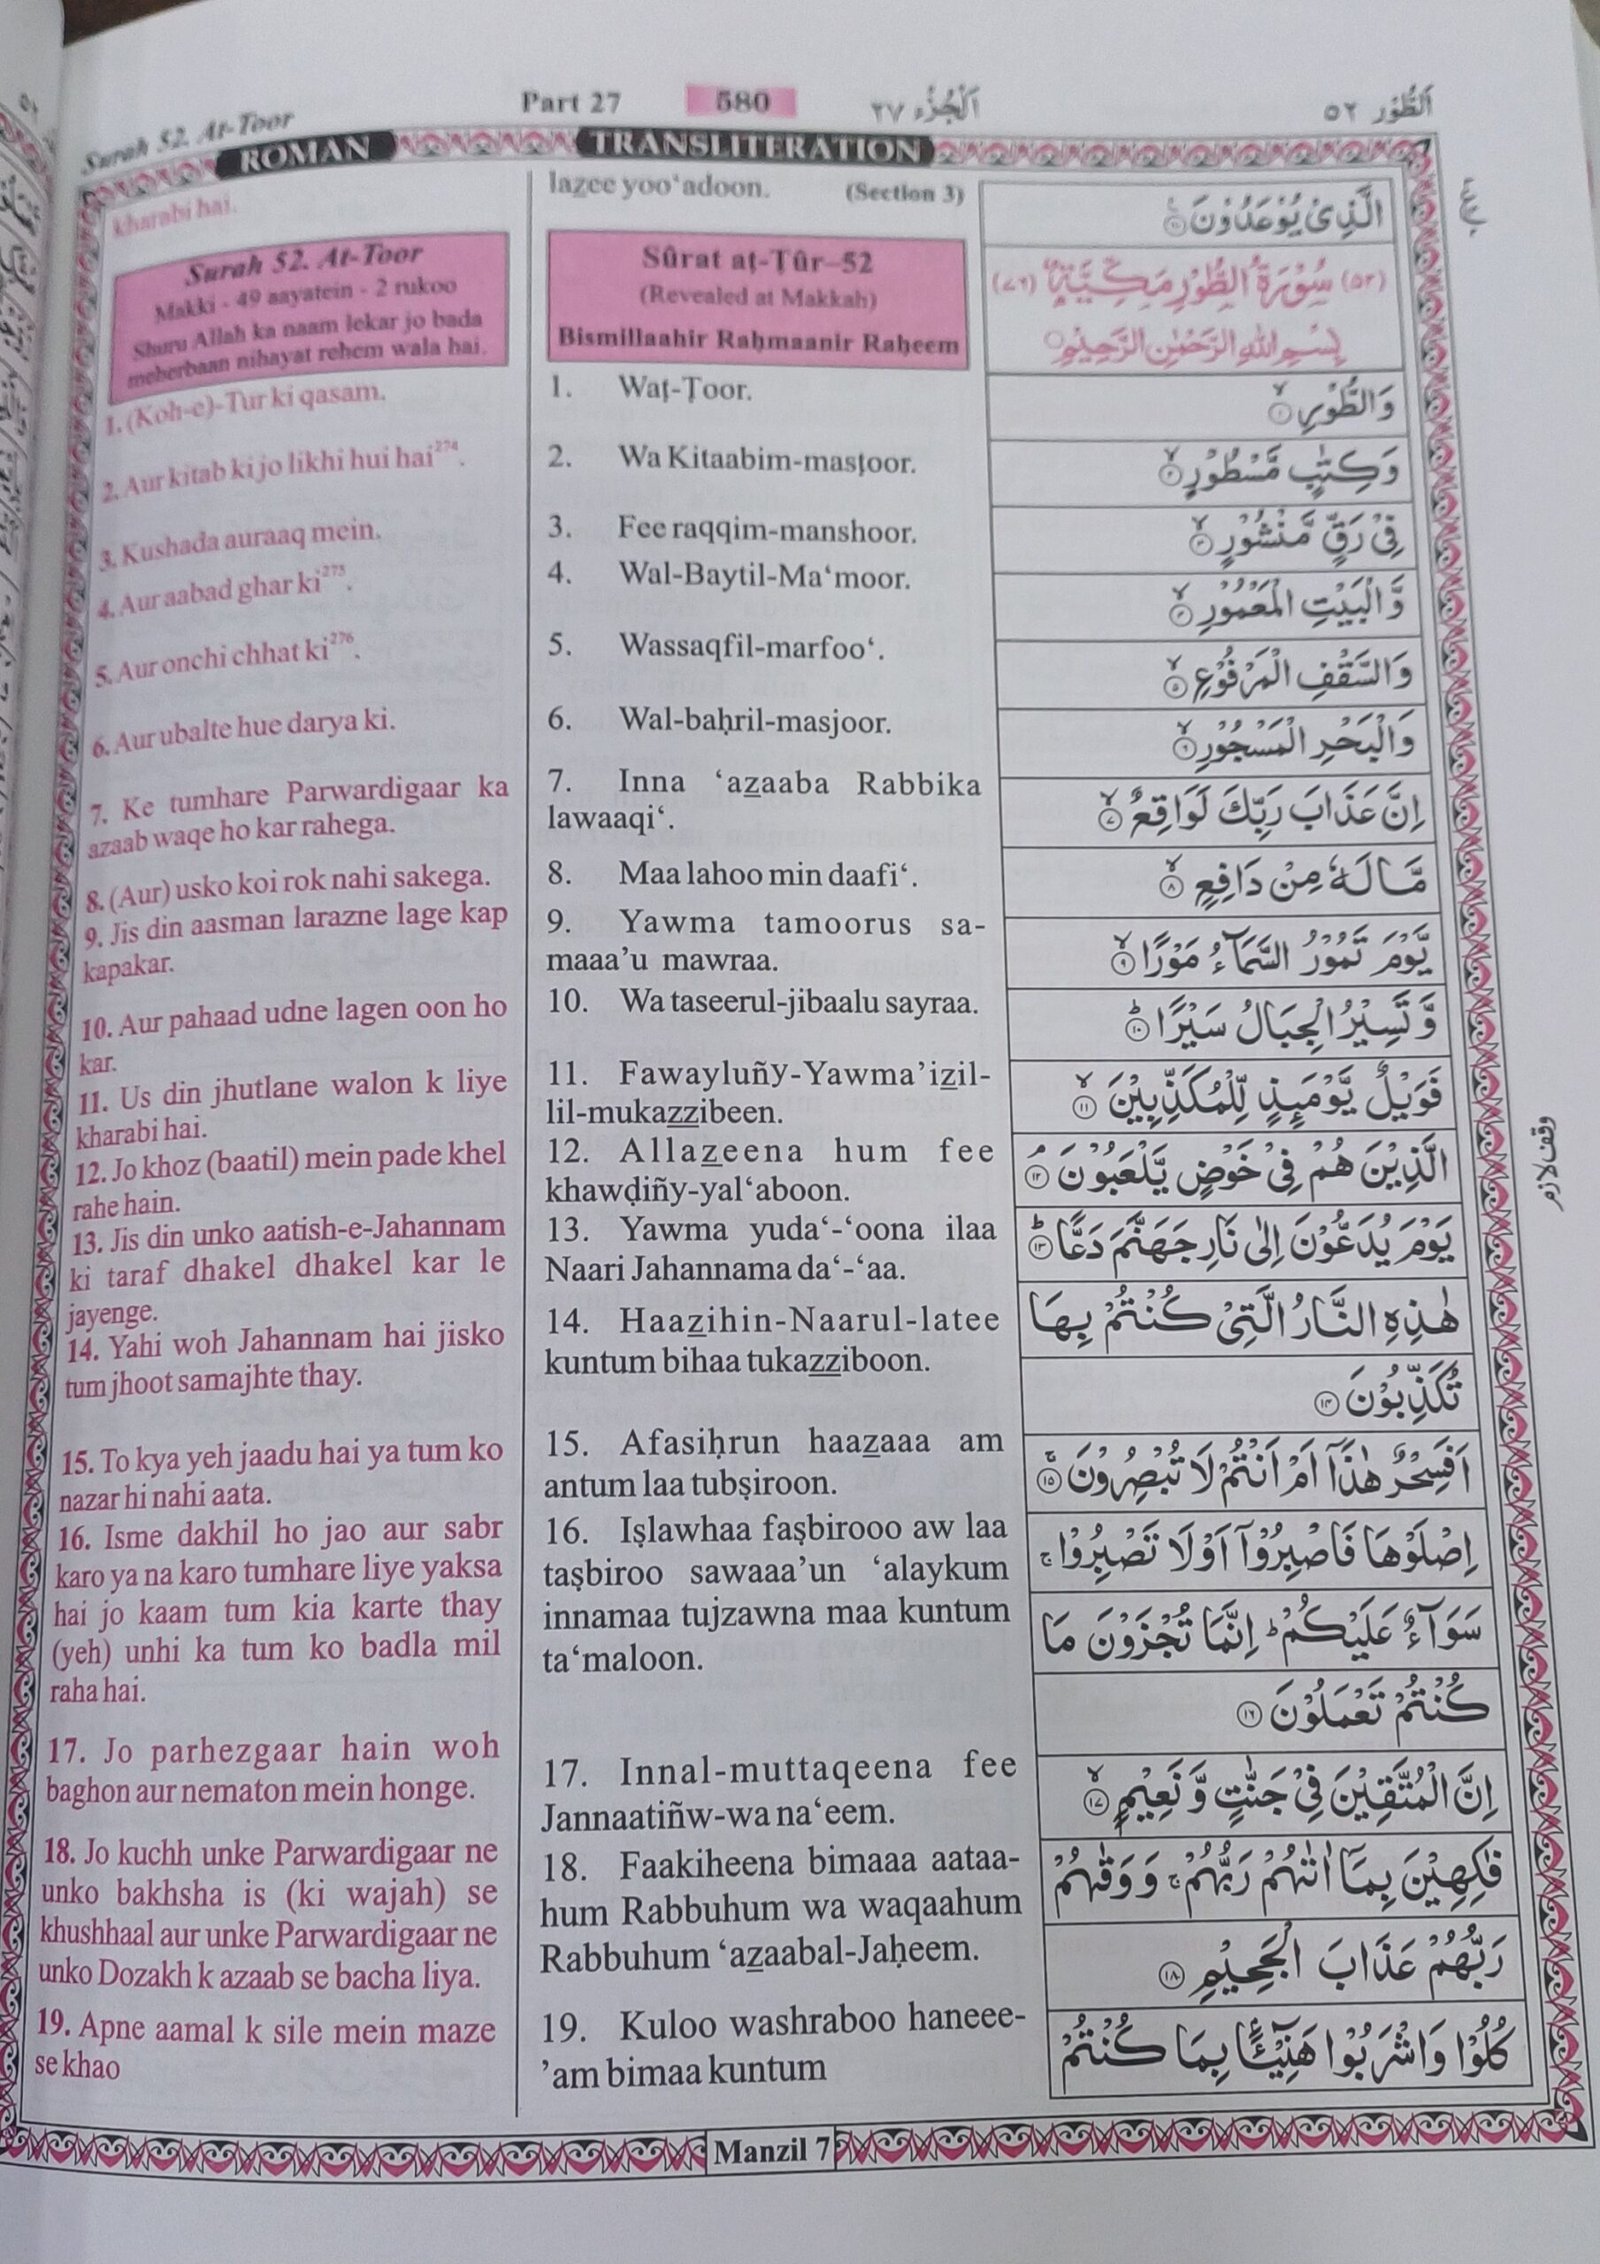 Surah 52. At-Toor
Part 27
580
اَلْجُزْء ٢٧
اَلطُّوْر ٥٢
ROMAN
TRANSLITERATION
kharabi hai.
Surah 52. At-Toor
Makki - 49 aayatein - 2 rukoo
Shuru Allah ka naam lekar jo bada
meherbaan nihayat rehem wala hai.
1. (Koh-e)-Tur ki qasam.
2. Aur kitab ki jo likhi hui hai274.
3. Kushada auraaq mein.
4. Aur aabad ghar ki275.
5. Aur onchi chhat ki276.
6. Aur ubalte hue darya ki.
7. Ke tumhare Parwardigaar ka
azaab waqe ho kar rahega.
8. (Aur) usko koi rok nahi sakega.
9. Jis din aasman larazne lage kap
kapakar.
10. Aur pahaad udne lagen oon ho
kar.
11. Us din jhutlane walon k liye
kharabi hai.
12. Jo khoz (baatil) mein pade khel
rahe hain.
13. Jis din unko aatish-e-Jahannam
ki taraf dhakel dhakel kar le
jayenge.
14. Yahi woh Jahannam hai jisko
tum jhoot samajhte thay.
15. To kya yeh jaadu hai ya tum ko
nazar hi nahi aata.
16. Isme dakhil ho jao aur sabr
karo ya na karo tumhare liye yaksa
hai jo kaam tum kia karte thay
(yeh) unhi ka tum ko badla mil
raha hai.
17. Jo parhezgaar hain woh
baghon aur nematon mein honge.
18. Jo kuchh unke Parwardigaar ne
unko bakhsha is (ki wajah) se
khushhaal aur unke Parwardigaar ne
unko Dozakh k azaab se bacha liya.
19. Apne aamal k sile mein maze
se khao
lazee yoo‘adoon. (Section 3)
Sûrat aṭ-Ṭûr–52
(Revealed at Makkah)
Bismillaahir Raḥmaanir Raḥeem
1. Waṭ-Ṭoor.
2. Wa Kitaabim-masṭoor.
3. Fee raqqim-manshoor.
4. Wal-Baytil-Ma‘moor.
5. Wassaqfil-marfoo‘.
6. Wal-baḥril-masjoor.
7. Inna ‘azaaba Rabbika
lawaaqi‘.
8. Maa lahoo min daafi‘.
9. Yawma tamoorus sa-
maaa’u mawraa.
10. Wa taseerul-jibaalu sayraa.
11. Fawayluñy-Yawma’izil-
lil-mukazzibeen.
12. Allazeena hum fee
khawḍiñy-yal‘aboon.
13. Yawma yuda‘-‘oona ilaa
Naari Jahannama da‘-‘aa.
14. Haazihin-Naarul-latee
kuntum bihaa tukazziboon.
15. Afasiḥrun haazaaa am
antum laa tubṣiroon.
16. Iṣlawhaa faṣbirooo aw laa
taṣbiroo sawaaa’un ‘alaykum
innamaa tujzawna maa kuntum
ta‘maloon.
17. Innal-muttaqeena fee
Jannaatiñw-wa na‘eem.
18. Faakiheena bimaaa aataa-
hum Rabbuhum wa waqaahum
Rabbuhum ‘azaabal-Jaḥeem.
19. Kuloo washraboo haneee-
’am bimaa kuntum
الَّذِىْ يُوْعَدُوْنَ
(٥٢) سُوْرَةُ الطُّوْرِ مَكِّيَّةٌ (٧٦)
بِسْمِ اللهِ الرَّحْمٰنِ الرَّحِيْمِ
وَالطُّوْرِ ۙ ١
وَكِتٰبٍ مَّسْطُوْرٍ ۙ ٢
فِىْ رَقٍّ مَّنْشُوْرٍ ۙ ٣
وَّالْبَيْتِ الْمَعْمُوْرِ ۙ ٤
وَالسَّقْفِ الْمَرْفُوْعِ ۙ ٥
وَالْبَحْرِ الْمَسْجُوْرِ ۙ ٦
اِنَّ عَذَابَ رَبِّكَ لَوَاقِعٌ ۙ ٧
مَّا لَهٗ مِنْ دَافِعٍ ۙ ٨
يَّوْمَ تَمُوْرُ السَّمَآءُ مَوْرًا ۙ ٩
وَّتَسِيْرُ الْجِبَالُ سَيْرًا ؕ ١٠
فَوَيْلٌ يَّوْمَئِذٍ لِّلْمُكَذِّبِيْنَ ۙ ١١
الَّذِيْنَ هُمْ فِىْ خَوْضٍ يَّلْعَبُوْنَ ۘ ١٢
يَوْمَ يُدَعُّوْنَ اِلٰى نَارِ جَهَنَّمَ دَعًّا ؕ ١٣
هٰذِهِ النَّارُ الَّتِىْ كُنْتُمْ بِهَا
تُكَذِّبُوْنَ ١٤
اَفَسِحْرٌ هٰذَآ اَمْ اَنْتُمْ لَا تُبْصِرُوْنَ ۚ ١٥
اِصْلَوْهَا فَاصْبِرُوْٓا اَوْ لَا تَصْبِرُوْا ۚ
سَوَآءٌ عَلَيْكُمْ ؕ اِنَّمَا تُجْزَوْنَ مَا
كُنْتُمْ تَعْمَلُوْنَ ١٦
اِنَّ الْمُتَّقِيْنَ فِىْ جَنّٰتٍ وَّنَعِيْمٍ ۙ ١٧
فٰكِهِيْنَ بِمَآ اٰتٰىهُمْ رَبُّهُمْ ۚ وَوَقٰىهُمْ
رَبُّهُمْ عَذَابَ الْجَحِيْمِ ١٨
كُلُوْا وَاشْرَبُوْا هَنِيْٓـئًا بِمَا كُنْتُمْ
وقف لازم
Manzil 7